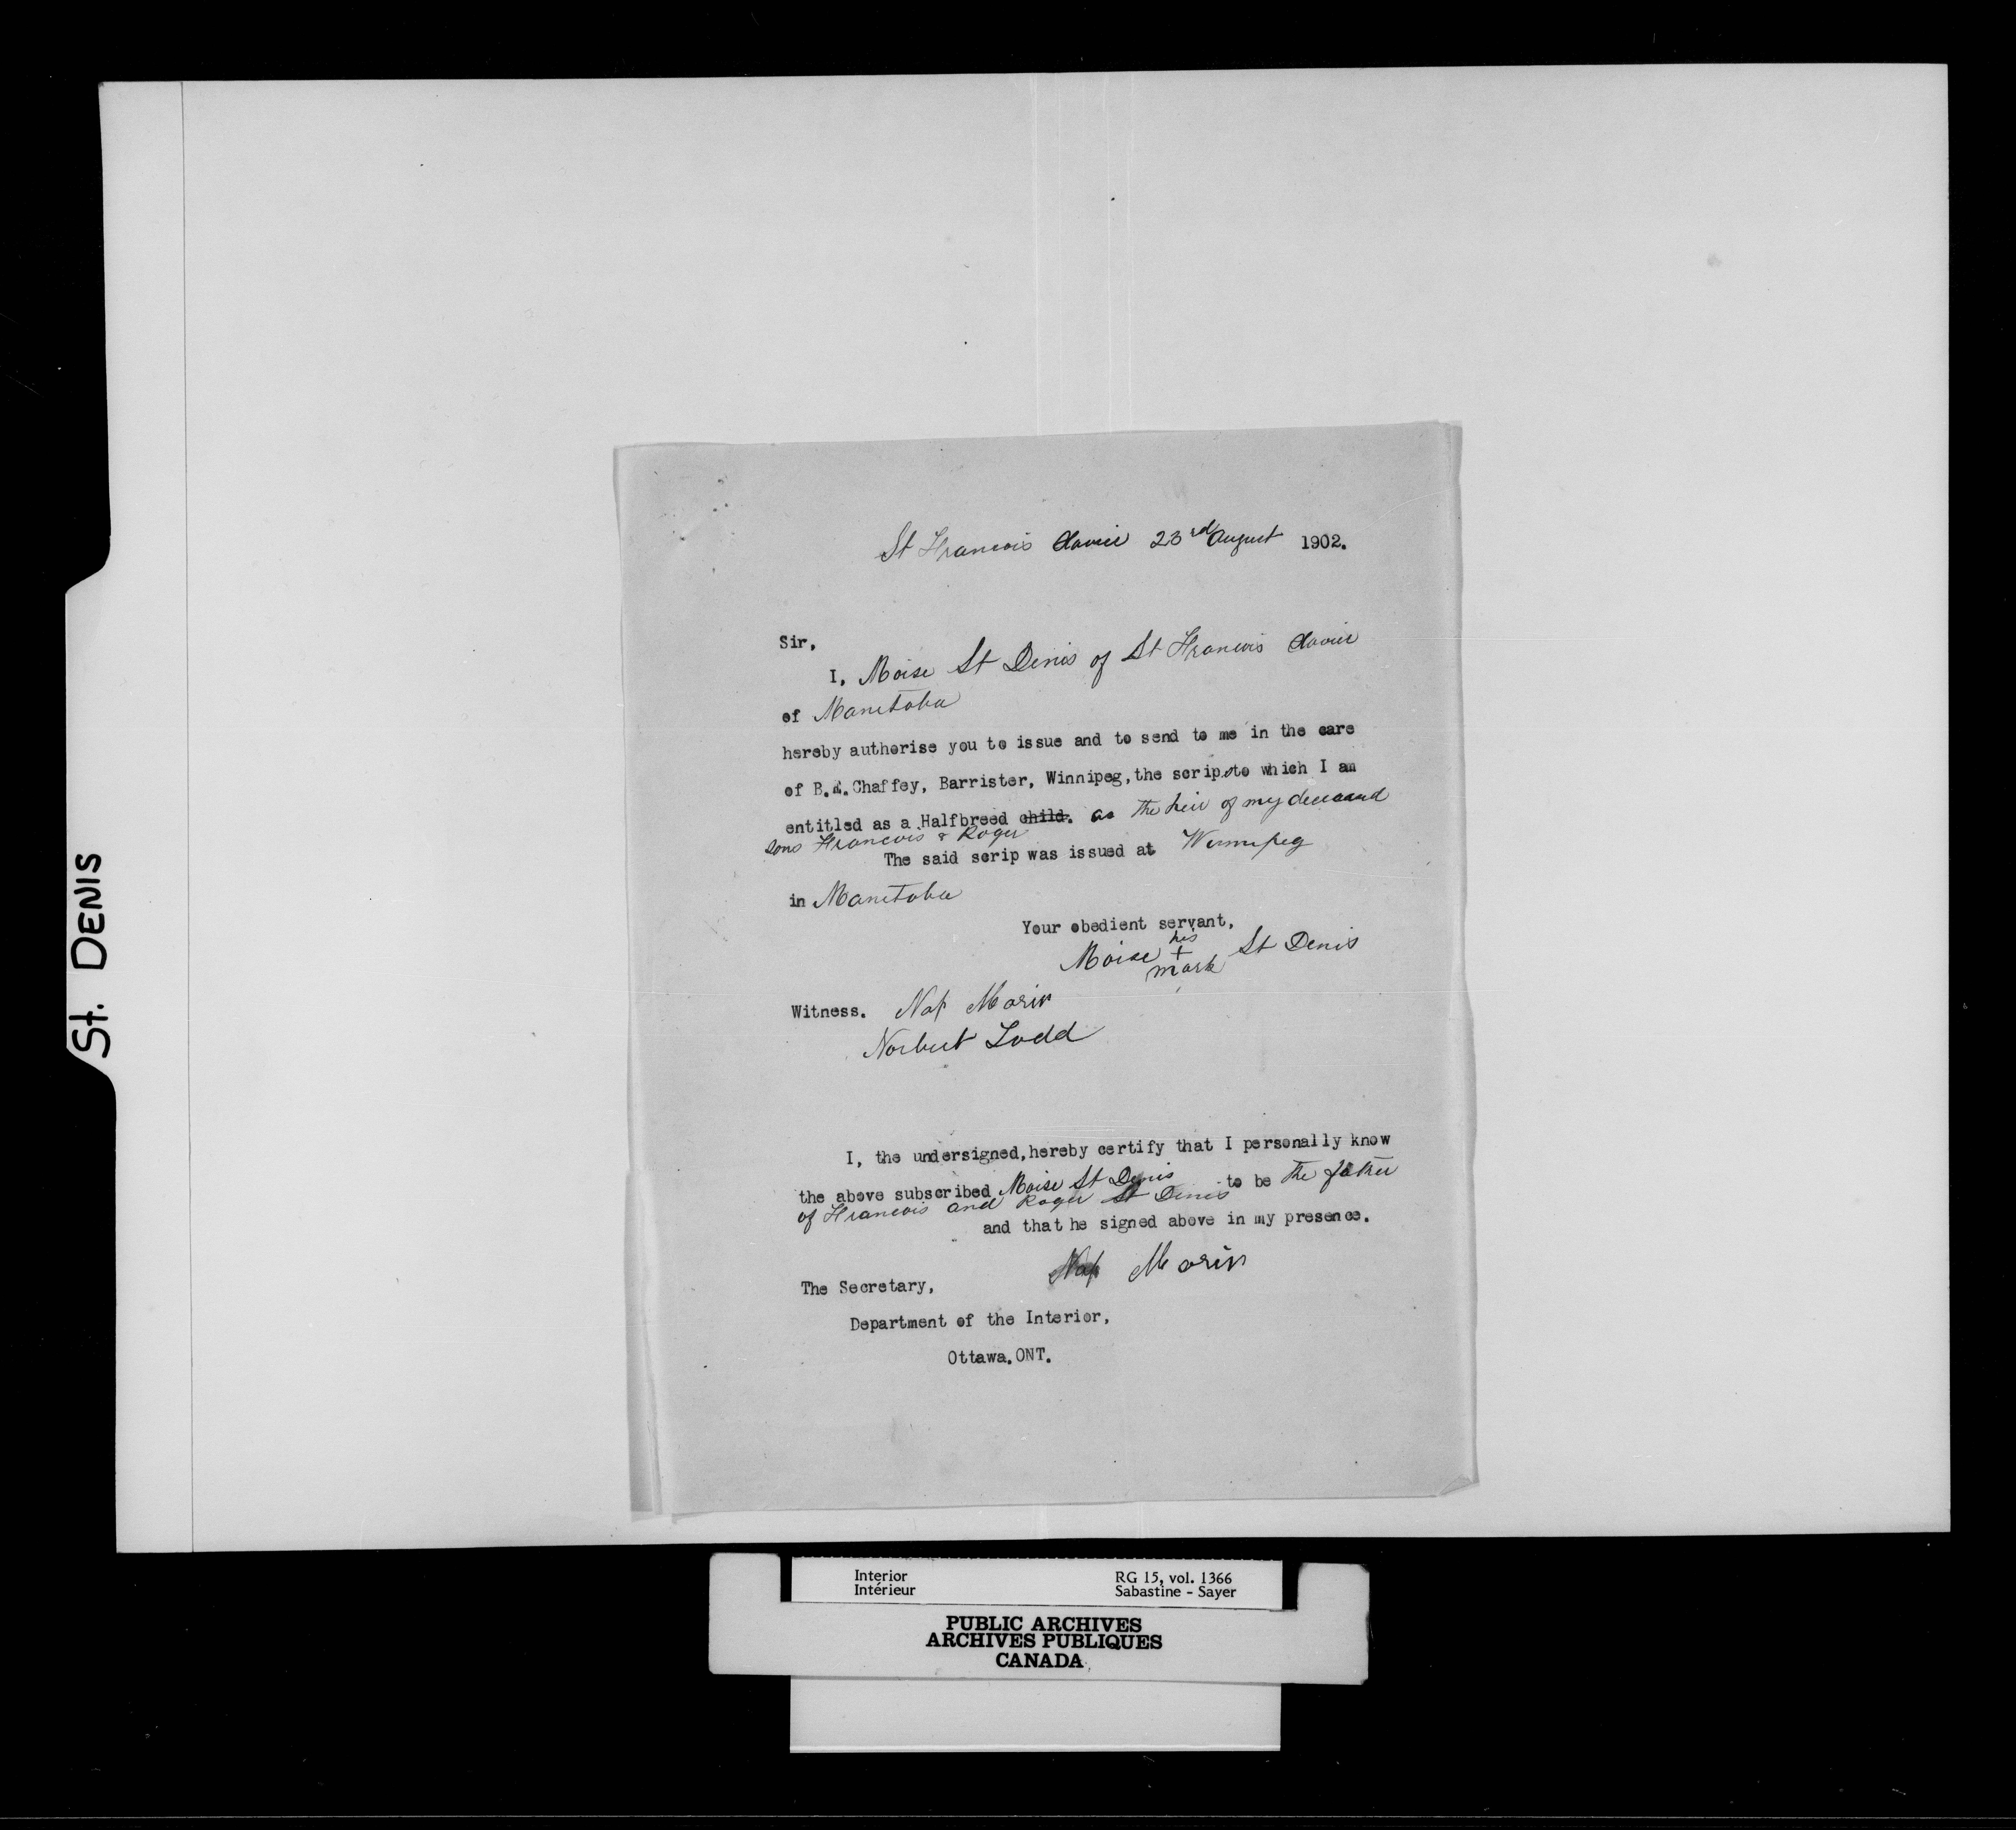 St. DENIS
St Francois Xavier 23rd August 1902.
Sir,
I, Moise St Denis of St Francois Xavier
of Manitoba
hereby authorise you to issue and to send to me in the care
of B.E.Chaffey, Barrister, Winnipeg, the scrip to which I am
entitled as a Halfbreed child. as the heir of my deceased
sons Francois & Roger
The said scrip was issued at Winnipeg
in Manitoba
Your obedient servant,
his
Moise + St Denis
mark
Witness. Nap Morin
Norbert Todd
I, the undersigned, hereby certify that I personally know
the above subscribed Moise St Denis to be the father
of Francois and Roger St Denis
and that he signed above in my presence.
Nap Morin
The Secretary,
Department of the Interior,
Ottawa. ONT.
Interior RG 15, vol. 1366
Intérieur Sabastine - Sayer
PUBLIC ARCHIVES
ARCHIVES PUBLIQUES
CANADA